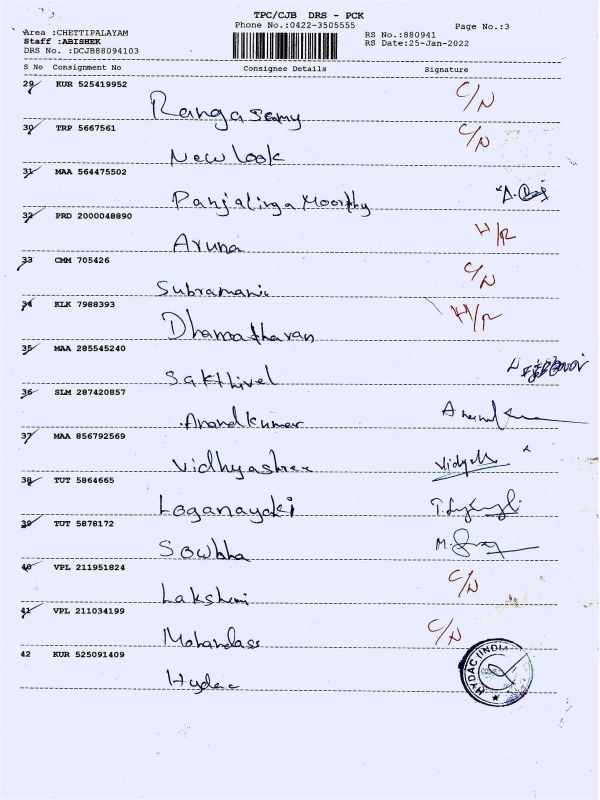 TPC/CJB DRS - PCK
Phone No.:0422-3505555
Page No.:3
Area :CHETTIPALAYAM
Staff :ABISHEK
DRS No. :DCJB88094103
RS No.:880941
RS Date:25-Jan-2022
S No Consignment No Consignee Details Signature
29 KUR 525419952 C/N
Rangasamy
30 TRP 5667561 C/N
New look
31 MAA 564475502
Panjalinga Moorthy
32 PRD 2000048890 H/R
Aruna
33 CMM 705426 C/N
Subramani
34 KLK 7988393 H/R
Dhamatharan
35 MAA 285545240
Sakthivel
36 SLM 287420857
Anandkumar
37 MAA 856792569
Vidhyashree
38 TUT 5864665
Loganayaki
39 TUT 5878172
Sowbha
40 VPL 211951824 C/N
Lakshmi
41 VPL 211034199 C/N
Mohandass
42 KUR 525091409
Hydac
HYDAC (INDIA